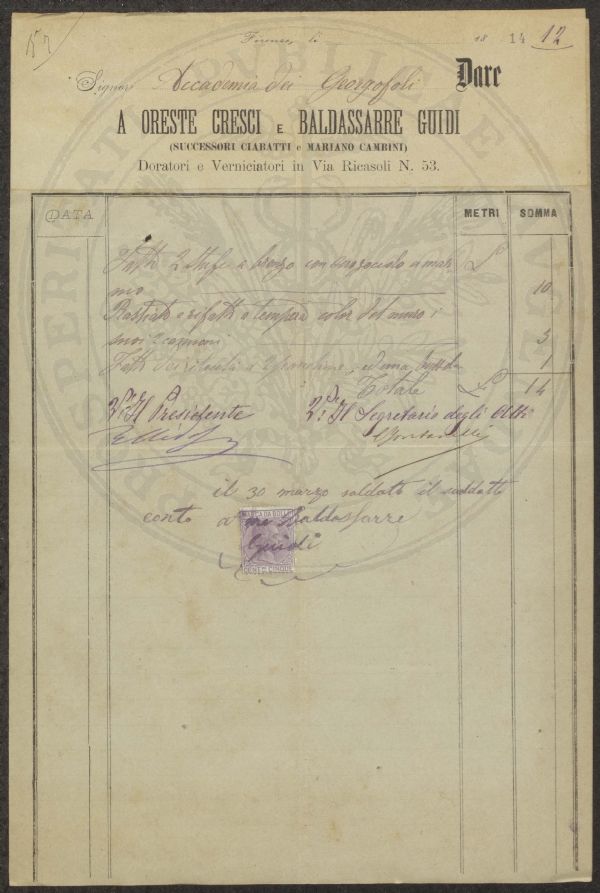 Nº 7
Firenze, li 18 14 12
Signori Accademia dei Georgofoli Dare
A ORESTE CRESCI E BALDASSARRE GUIDI
(SUCCESSORI CIABATTI e MARIANO CAMBINI)
Doratori e Verniciatori in Via Ricasoli N. 53.
DATA METRI SOMMA
Fatto 2 stufe a bronzo con a mar L
mo 10
Rastiato e rifatto a tempera color del muro i
suoi 2 cannoni 3
Fatti a 2 ed una 1
Totale L 14
Pº Il Presidente Pº Il Segretario degli Atti
il 30 marzo saldato il suddetto
conto a me Baldassarre
Guidi
MARCA DA BOLLO
CENT. CINQUE